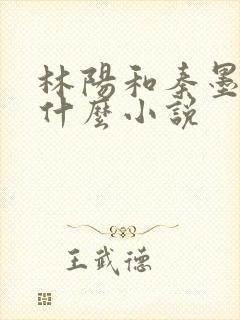 林陽和秦墨
什麼小說
王武德